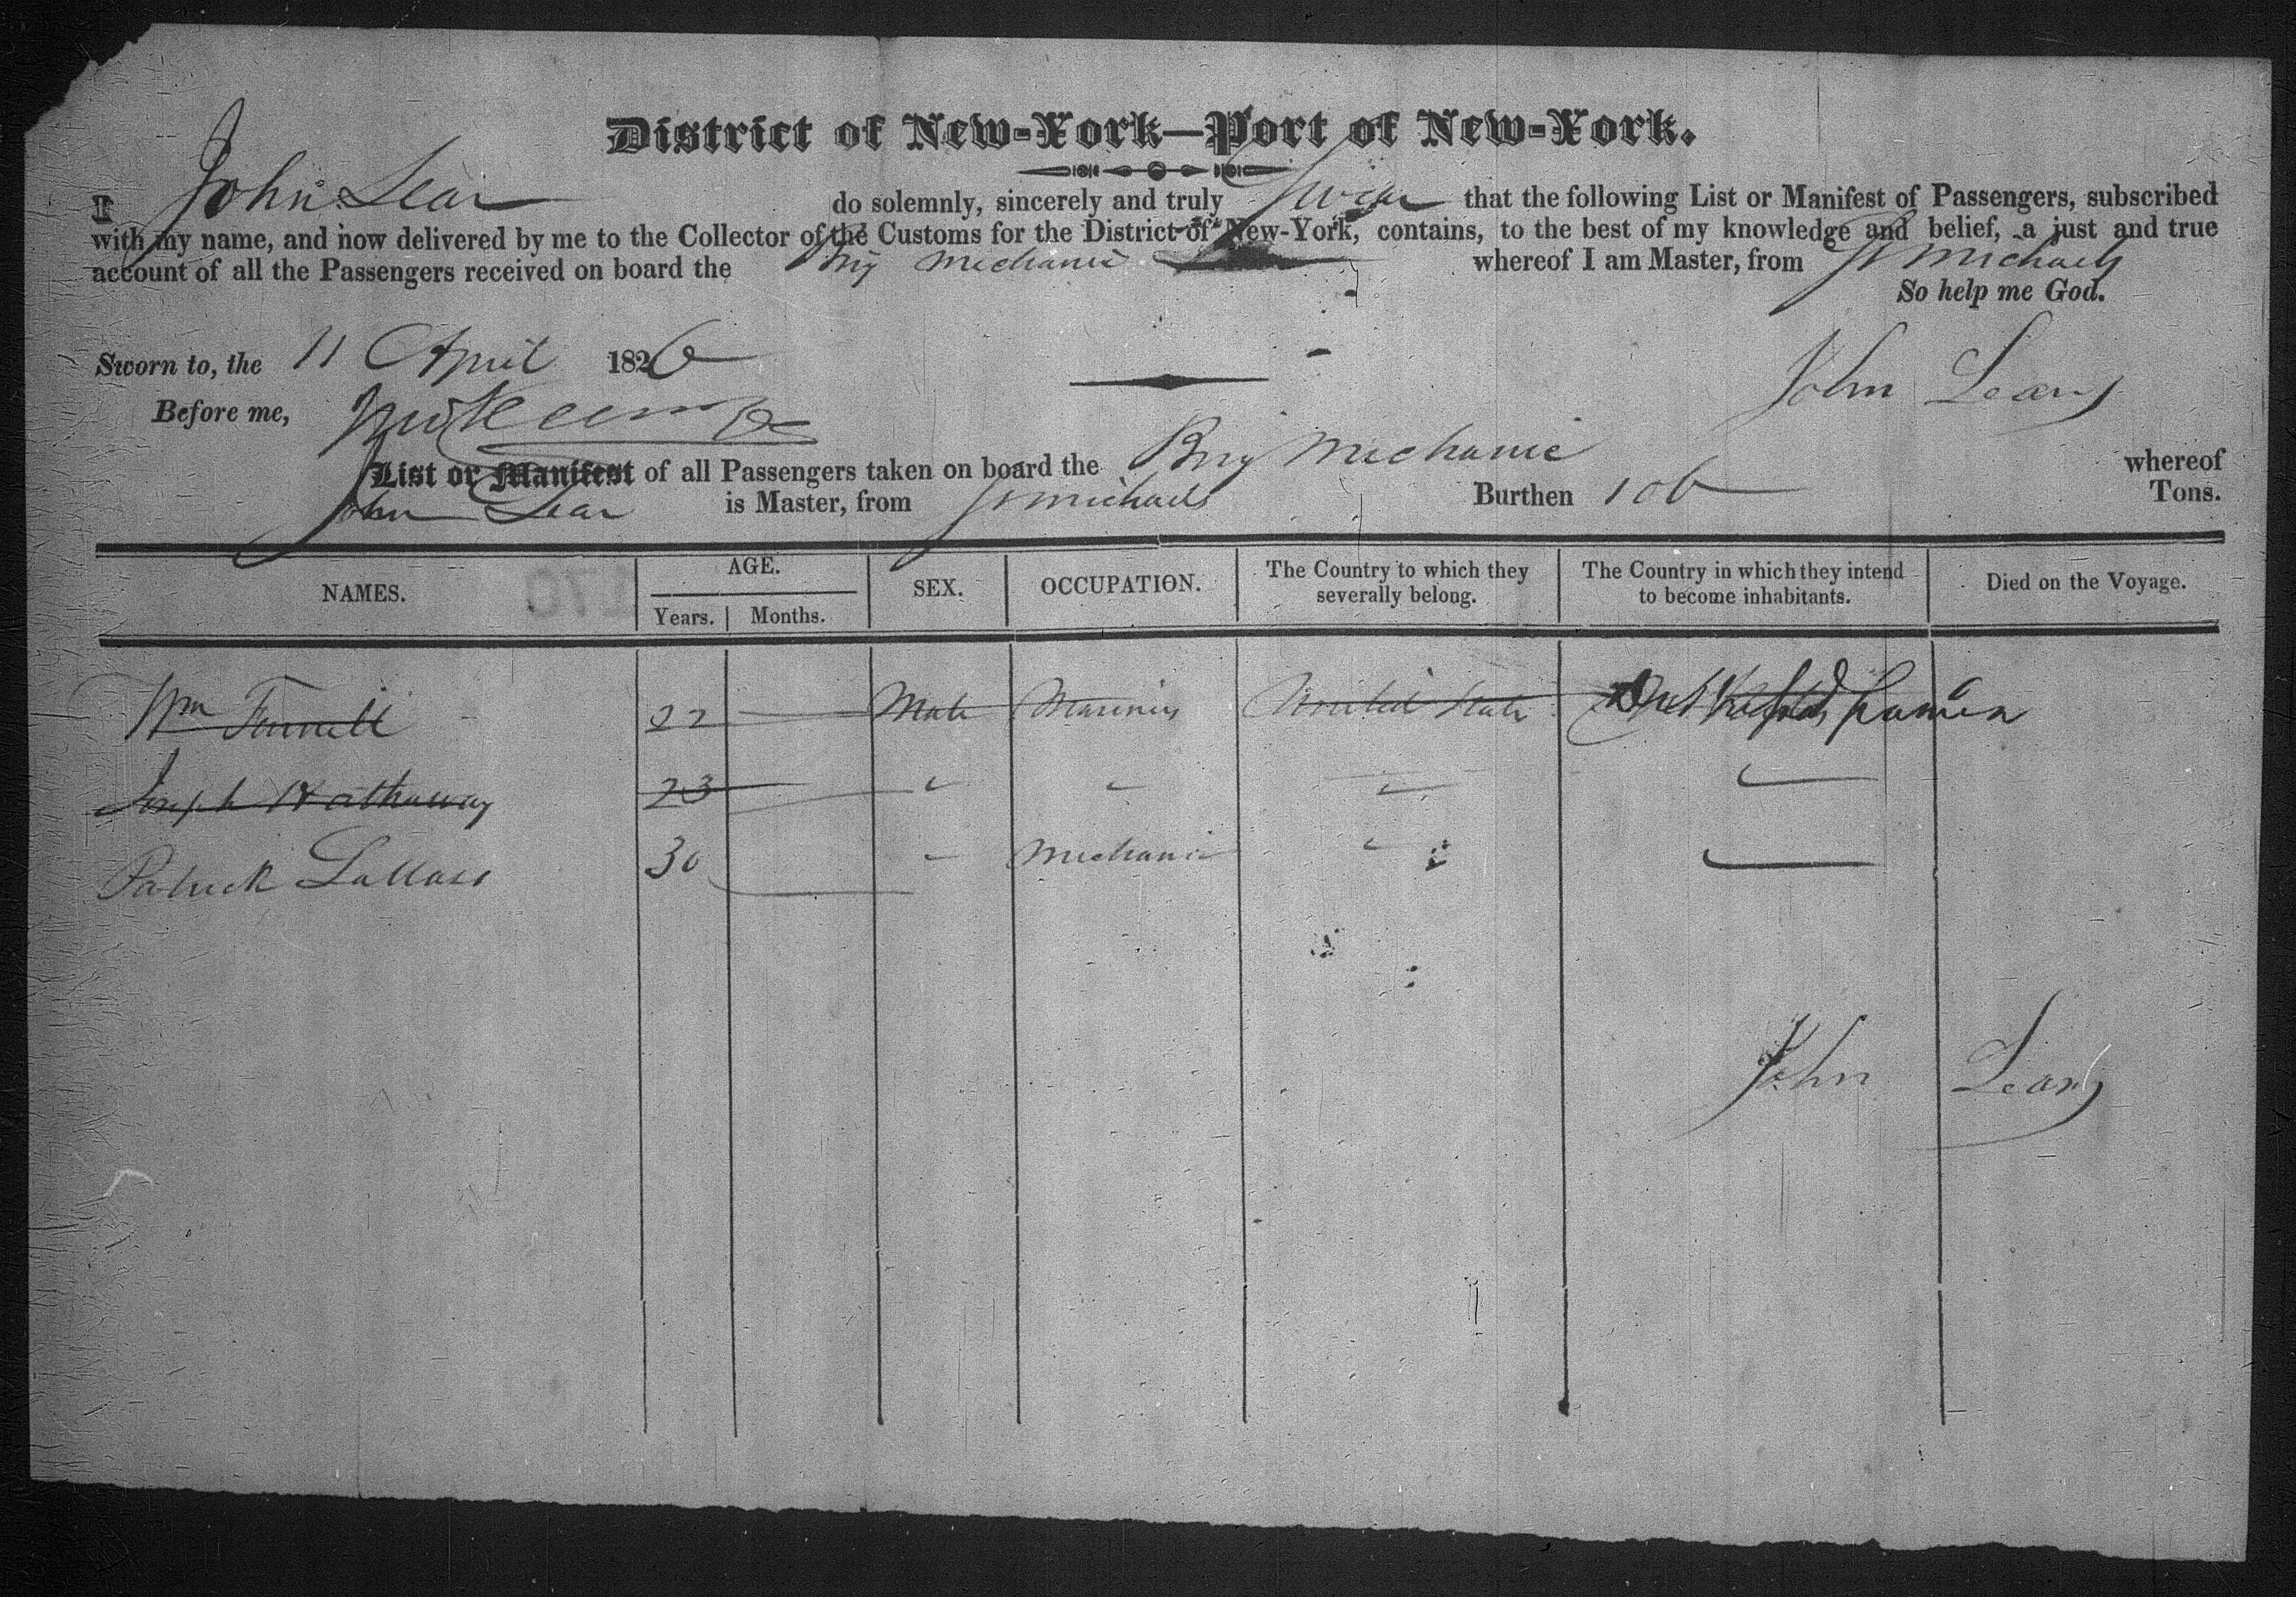 District of New-York—Port of New-York.
I John Lear do solemnly, sincerely and truly Swear that the following List or Manifest of Passengers, subscribed
with my name, and now delivered by me to the Collector of the Customs for the District of New-York, contains, to the best of my knowledge and belief, a just and true
account of all the Passengers received on board the Brig Mechanic whereof I am Master, from St Michaels
So help me God.
Sworn to, the 11 April 1826
John Leary
Before me,
List or Manifest of all Passengers taken on board the Brig Mechanic whereof
John Lear is Master, from St Michaels Burthen 106 Tons.
NAMES. AGE. SEX. OCCUPATION. The Country to which they severally belong. The Country in which they intend to become inhabitants. Died on the Voyage.
Years. Months.
Wm 22 Male Mariner United State
Joseph Hathaway 23 " " " "
Patrick 30 " Mechanic " "
John Leary
170